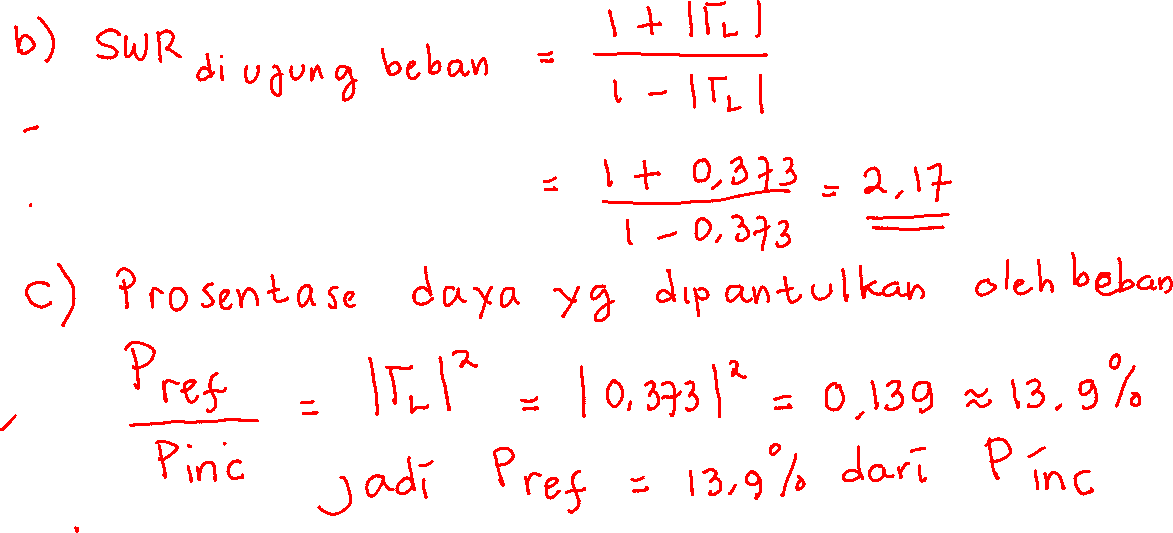 b) SWR di ujung beban = 1 + |Γ_L| / 1 - |Γ_L|
= 1 + 0,373 / 1 - 0,373 = 2,17
c) Prosentase daya yg dipantulkan oleh beban
P ref / Pinc = |Γ_L|² = |0,373|² = 0,139 ≈ 13,9%
jadi P ref = 13,9% dari P inc